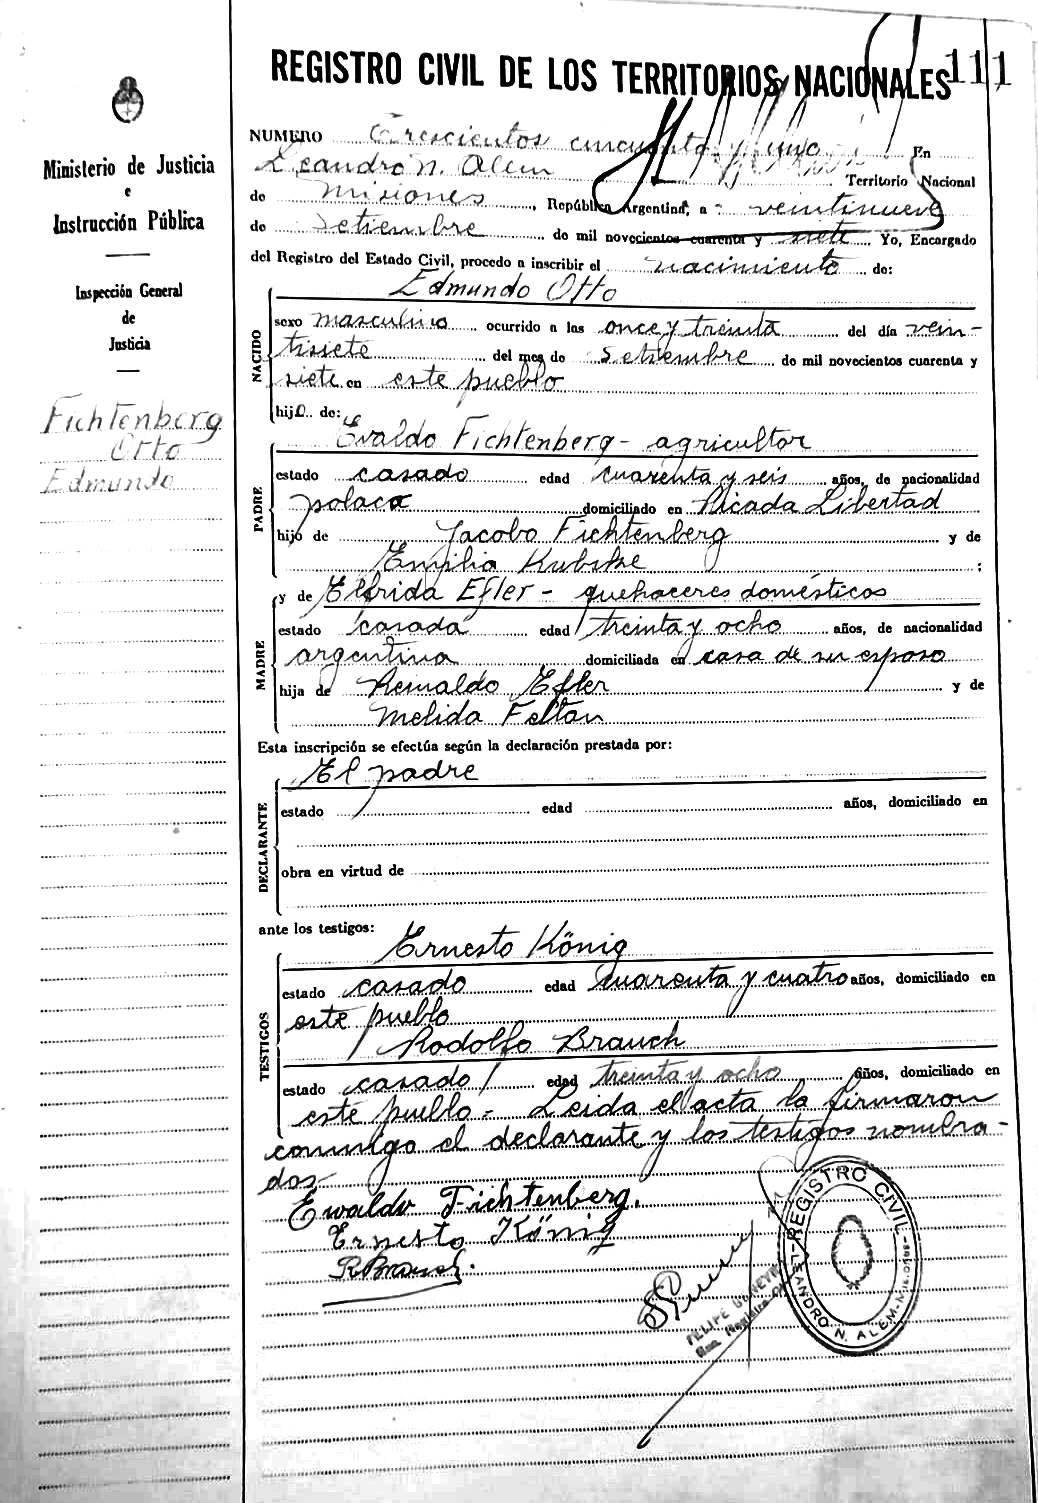 111
REGISTRO CIVIL DE LOS TERRITORIOS NACIONALES
Ministerio de Justicia
e
Instrucción Pública
Inspección General
de
Justicia
Fichtenberg
Otto
Edmundo
NUMERO Trescientos cincuenta y uno En
Leandro N. Alem Territorio Nacional
de Misiones, República Argentina, a veintinueve
de Setiembre de mil novecientos cuarenta y siete Yo, Encargado
del Registro del Estado Civil, procedo a inscribir el nacimiento de:
Edmundo Otto
NACIDO
sexo masculino ocurrido a las once y treinta del día vein-
tisiete del mes de Setiembre de mil novecientos cuarenta y
siete en este pueblo
hijo de:
PADRE
Evaldo Fichtenberg - agricultor
estado casado edad cuarenta y seis años, de nacionalidad
polaca domiciliado en Picada Libertad
hijo de Jacobo Fichtenberg y de
Emilia Kubske ;
MADRE
y de Elfrida Efler - quehaceres domésticos
estado casada edad treinta y ocho años, de nacionalidad
argentina domiciliada en casa de su esposo
hija de Reinaldo Efler y de
Melida Feltan
Esta inscripción se efectúa según la declaración prestada por:
DECLARANTE
El padre
estado edad años, domiciliado en
obra en virtud de
ante los testigos:
TESTIGOS
Ernesto König
estado casado edad cuarenta y cuatro años, domiciliado en
este pueblo
Rodolfo Brauch
estado casado edad treinta y ocho años, domiciliado en
este pueblo - Leida el acta la firmaron
conmigo el declarante y los testigos nombra-
dos-
Ewaldo Fichtenberg.
Ernesto König
R Brauch.
REGISTRO CIVIL
LEANDRO N. ALEM - MISIONES
FELIPE